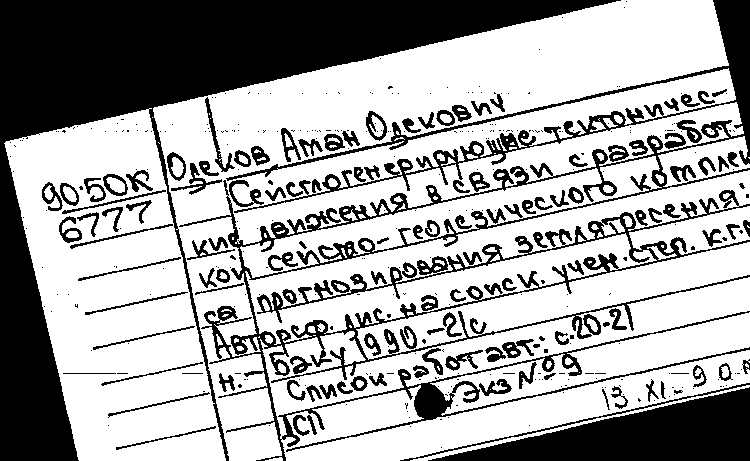 90-50к
6777
Одеков, Аман Одекович
Сейсмогенерирующие тектоничес-
кие движения в связи с разработ-
кой сейсмо-геодезического комплек
са прогнозирования землятресения:
Автореф. дис. на соиск. учен. степ. к.г.-
н. - Баку, 1990.-21с.
Список работ авт.: с.20-21
ДСП Экз №9
13.XI-90